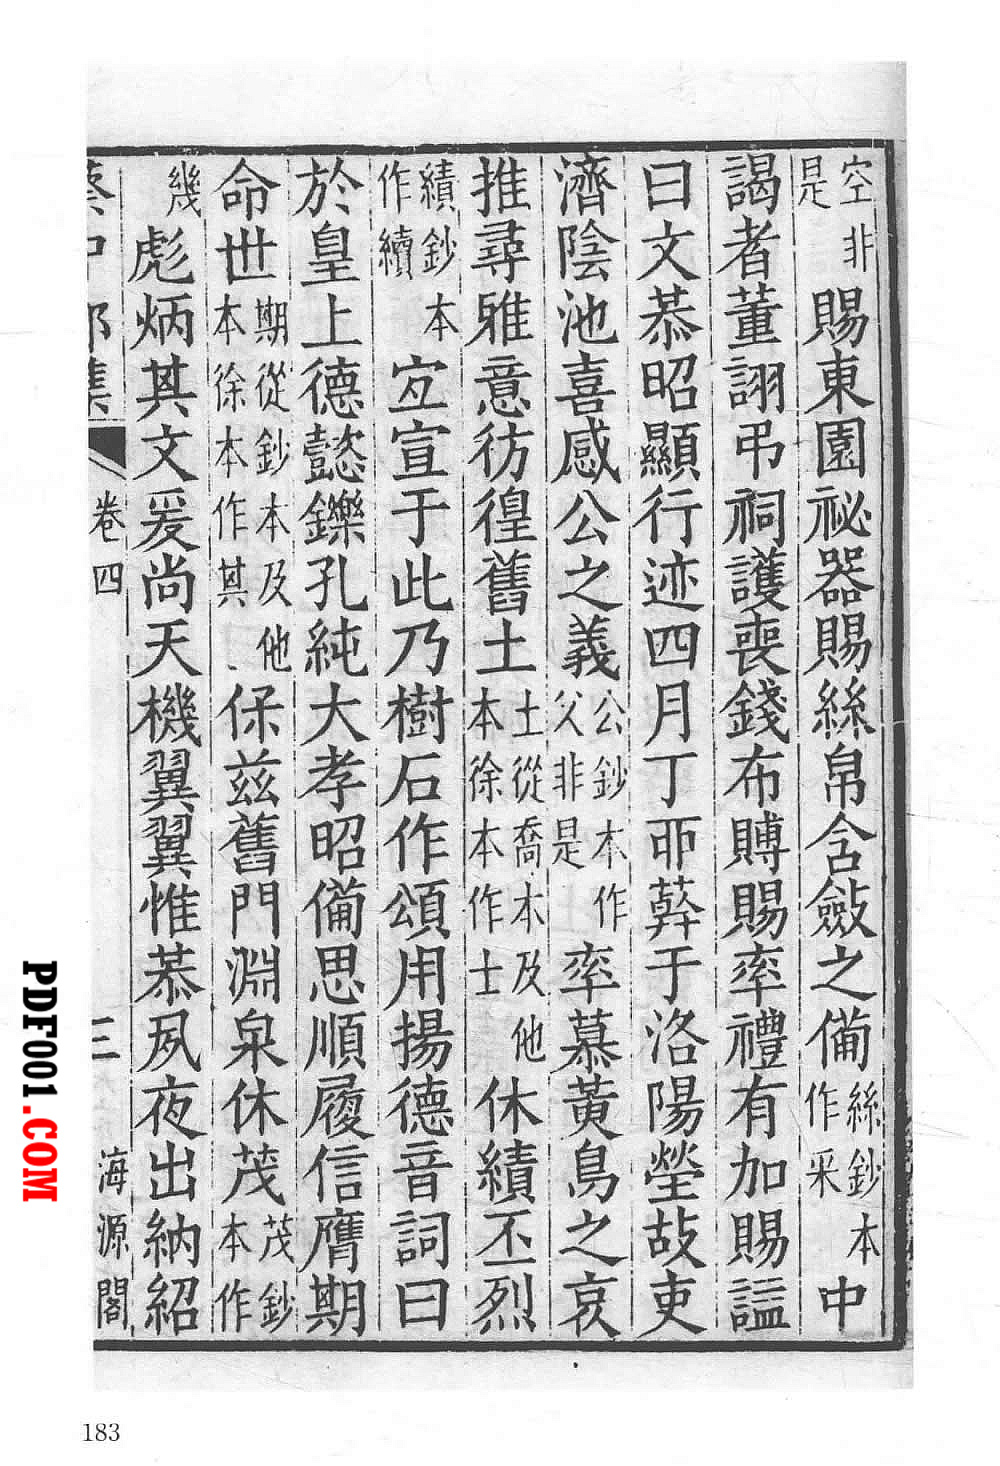 空非是賜東園祕器賜絲帛含斂之備絲鈔本作采中
謁者董詡弔祠護喪錢布賻賜率禮有加賜謚
曰文恭昭顯行迹四月丁丣葬于洛陽塋故吏
濟陰池喜感公之義公鈔本作父非是率慕黃鳥之哀
推尋雅意彷徨舊土土從喬本及他本徐本作士休績丕烈
績鈔本作續宐宣于此乃樹石作頌用揚德音詞曰
於皇上德懿鑠孔純大孝昭備思順履信膺期
命世期從鈔本及他本徐本作其保茲舊門淵泉休茂茂鈔本作
幾彪炳其文爰尚天機翼翼惟恭夙夜出納紹
蔡中郎集 卷四 三 海源閣
PDF001.COM
183